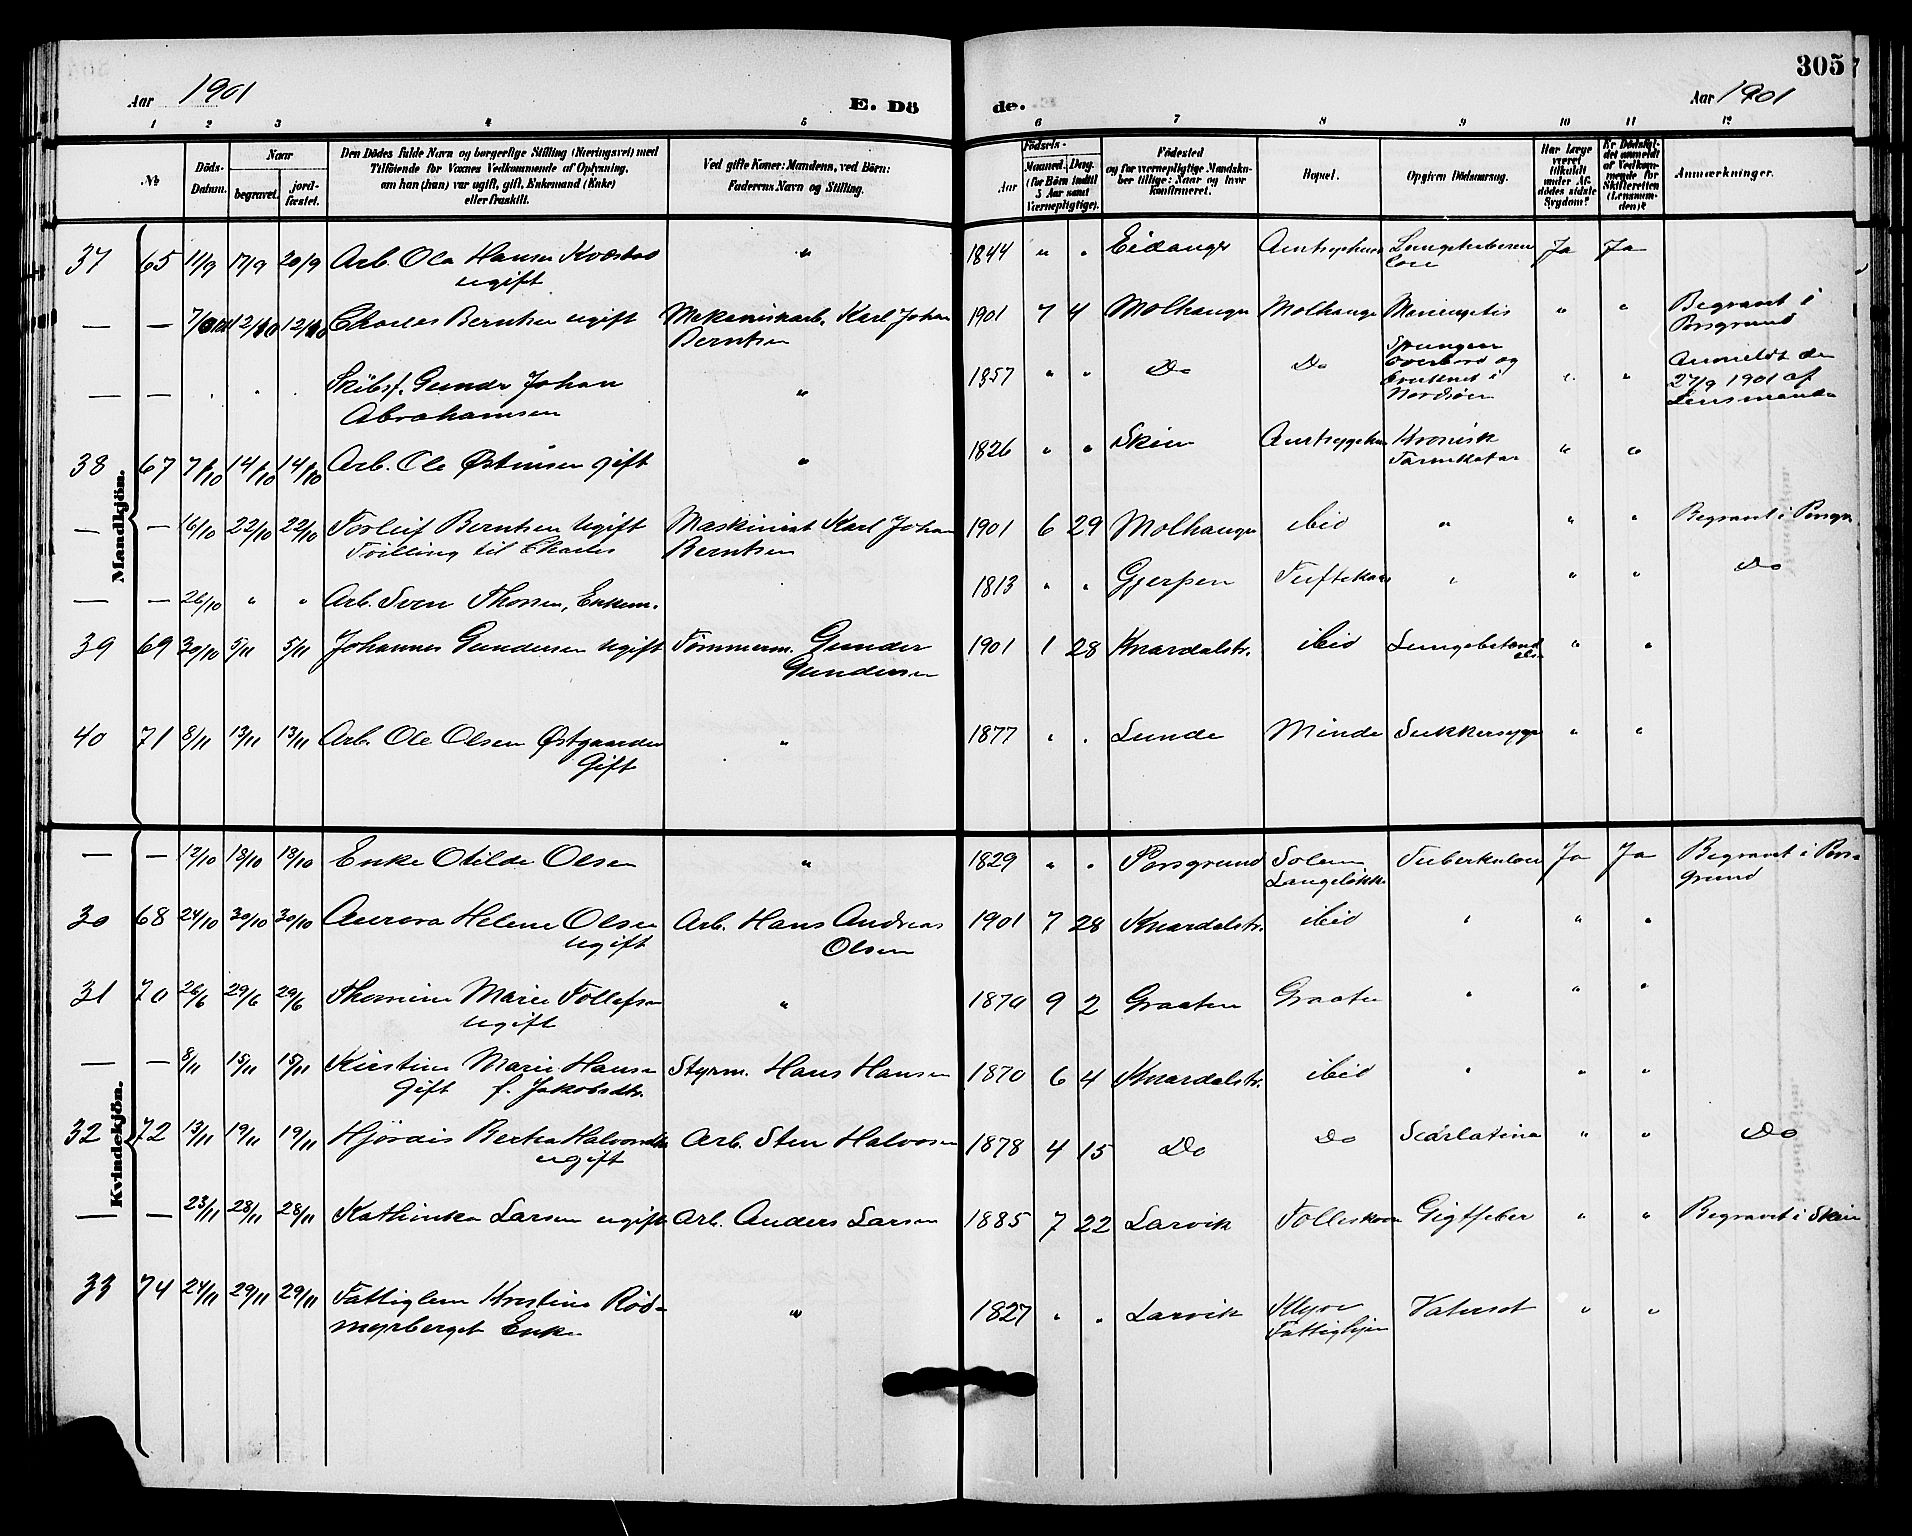 305
Aar 1901 E. Dö de. Aar 1901
1 2 3 4 5 6 7 8 9 10 11 12
№ Döds-Datum. Naar begravet. jordfæstet. Den Dödes fulde Navn og borgerlige Stilling (Næringsvei) med Tilföiende for Voxnes Vedkommende af Oplysning, om han (hun) var ugift, gift, Enkemand (Enke) eller fraskilt. Ved gifte Koner: Mandens, ved Börn: Faderens Navn og Stilling. Födsels- Aar Maaned. Dag. (for Börn indtil 5 Aar samt Værnepligtige). Födested og for værnepligtige Mandskaber tillige: Naar og hvor konfirmeret. Bopæl. Opgiven Dödsaarsag. Har Læge været tilkaldt under Afdödes sidste Sygdom? Er Dödsfaldet anmeldt af Vedkommende for Skifteretten (Lensmanden)? Anmærkninger.
Mandkjön.
37 65 11/9 17/9 20/9 Arb. Ola Hansen Kvæstad ugift " 1844 " " Eidanger Amtssygehus Ja Ja
— — 12/10 12/10 Charles Berntsen ugift Mekaniskarb. Karl Johan Berntsen 1901 7 4 Molhaugen Molhaugen Meningitis " " Begravet i Porsgrund
— — " " Skibsf. Gunder Johan Abrahamsen " 1857 " " Do Do Sprungen overbord og druknet i Nordsöen " " Anmeldt den 27/9 1901 af Lensmanden
38 67 7/10 14/10 14/10 Arb. Ole Østensen gift " 1826 " " Skien Amtssygehus Kronisk Tarmkatar " "
— — 16/10 22/10 22/10 Torleif Berntsen ugift Tvilling til Charles Maskinist Karl Johan Berntsen 1901 6 29 Molhaugen ibid " " " Begravet i Porsgr.
— — 26/10 " " Arb. Sven Thossen, Enkem. 1813 " " Gjerpen Tuftekaas " " " Do
39 69 30/10 5/11 5/11 Johannes Gundersen ugift Tömmerm. Gunder Gundersen 1901 1 28 Knardalstr. ibid Lungebetændelse " "
40 71 8/11 13/11 13/11 Arb. Ole Olsen Østgaarden Gift " 1877 " " Lunde Minde Sukkersyge " "
Kvindekjön.
— — 12/10 18/10 18/10 Enke Otilde Olsen " 1829 " " Porsgrund Solum Langelökk. Tuberkulose Ja Ja Begravet i Pors-Grund
30 68 24/10 30/10 30/10 Aurora Helene Olsen ugift Arb. Hans Andreas Olsen 1901 7 28 Knardalstr. ibid " " "
31 70 26/6 29/6 29/6 Thomine Marie Tollefsen ugift " 1870 9 2 Graaten Graaten " " "
— — 8/11 15/11 15/11 Kirstine Marie Hansen Gift f. Jakobsdtr. Styrm. Hans Hansen 1870 6 4 Knardalstr. ibid " " "
32 72 13/11 19/11 19/11 Hjördis Berta Halvorsdtr ugift Arb. Sten Halvorsen 1878 4 15 Do Do Scarlatina " " Do
— — 23/11 28/11 28/11 Kathinka Larsen ugift Arb. Anders Larsen 1885 7 22 Larvik Gigtfeber " " Begravet i Skien
33 74 24/11 29/11 29/11 Fattiglem Kristine Röd-myrberget Enke " 1827 " " Larvik Klyve Fattighjem Vatersot " "